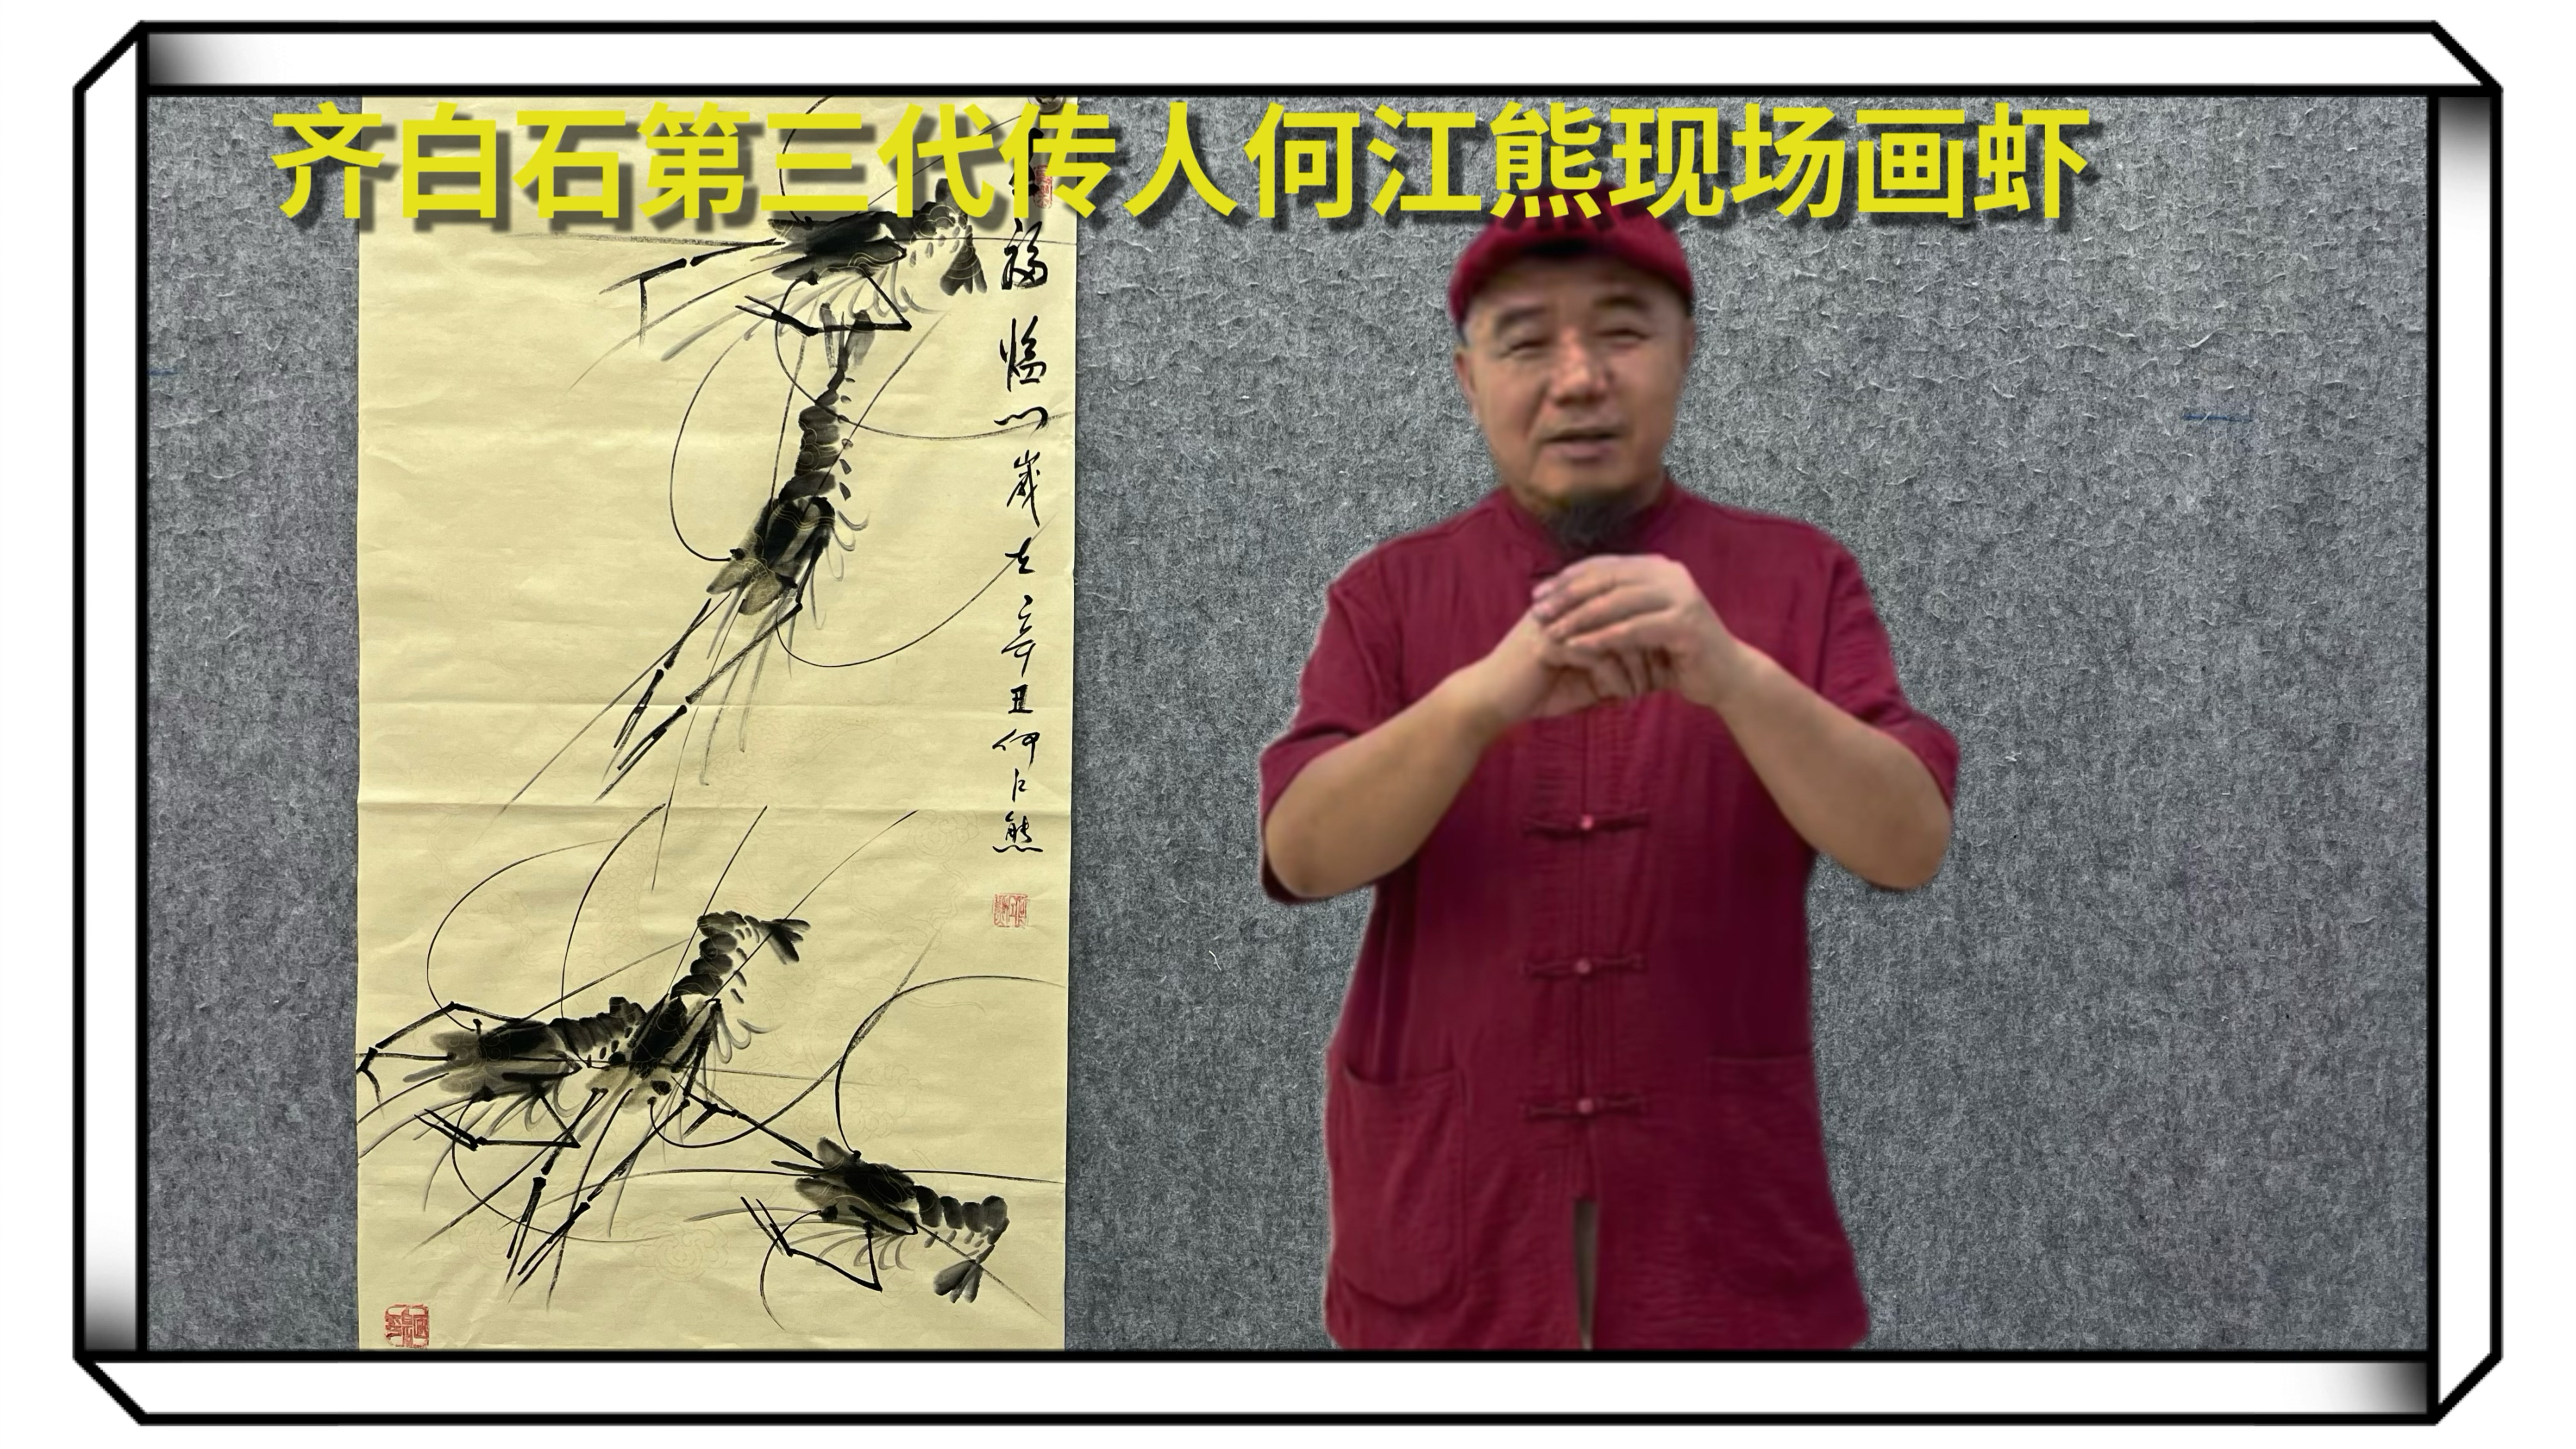 齐白石第三代传人何江熊现场画虾
福临门岁在辛丑何江熊